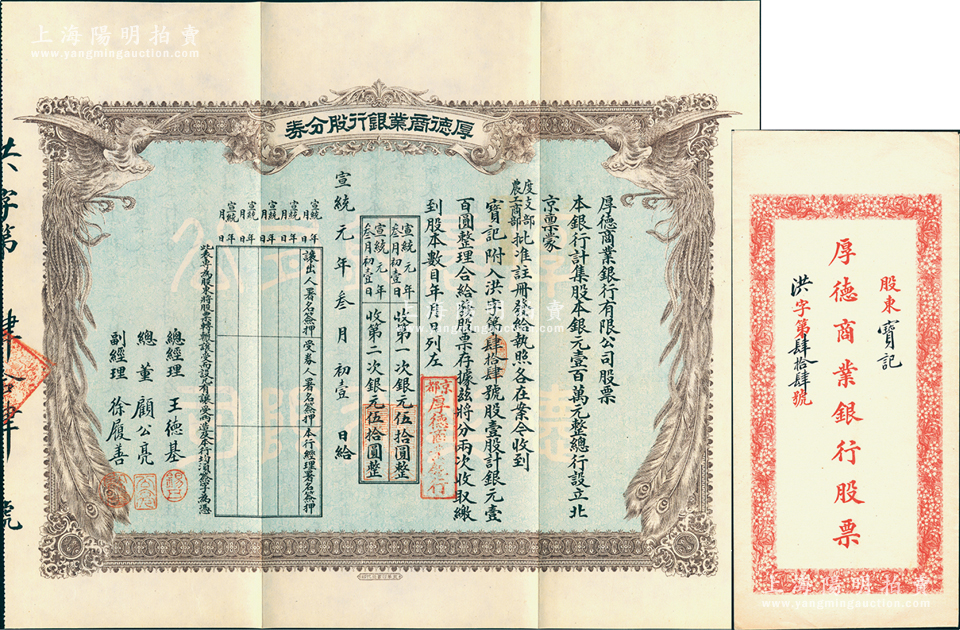 上海陽明拍賣
www.yangmingauction.com
厚德商業銀行股分券
厚德商業銀行有限公司股票
本銀行計集股本銀元壹百萬元整總行設立北
京稟蒙
度支部
農工商部批准註冊發給執照各在案今收到
寶記附入洪字第肆拾肆號股壹股計銀元壹
百圓整理合給發股票存據茲將分兩次收取繳
到股本數目年月日列左
宣統元年叁月初壹日收第一次銀元伍拾圓整
宣統元年叁月初壹日收第二次銀元伍拾圓整
宣統元年叁月初壹日給
宣統年月日
宣統年月日
宣統年月日
宣統年月日
宣統年月日
讓出人署名簽押
受券人署名簽押
本行經理署名簽押
此表專為股東將股票轉輾讓受而設凡有讓受兩造及本行均須簽字為憑
總經理 王德基
總董 顧公亮
副經理 徐履善
京都厚德商業銀行
洪字第肆拾肆號
股東寶記
厚德商業銀行股票
洪字第肆拾肆號
上海陽明拍賣
www.yangmingauction.com
上海陽明拍賣
www.yangmingauction.com